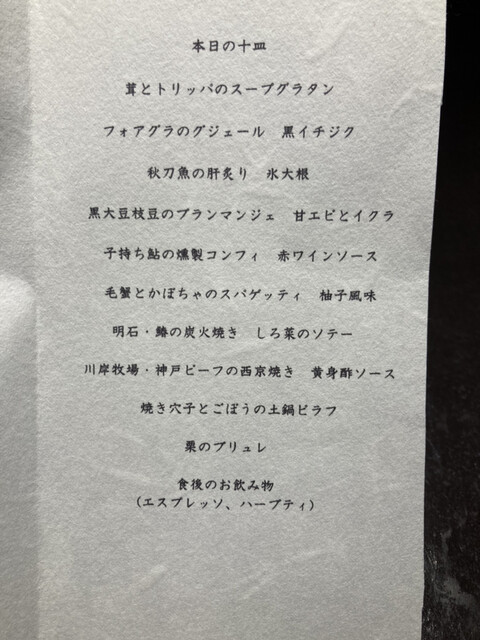 本日の十皿
茸とトリッパのスープグラタン
フォアグラのグジェール　黒イチジク
秋刀魚の肝炙り　氷大根
黒大豆枝豆のブランマンジェ　甘エビとイクラ
子持ち鮎の燻製コンフィ　赤ワインソース
毛蟹とかぼちゃのスパゲッティ　柚子風味
明石・鰆の炭火焼き　しろ菜のソテー
川岸牧場・神戸ビーフの西京焼き　黄身酢ソース
焼き穴子とごぼうの土鍋ピラフ
栗のブリュレ
食後のお飲み物
（エスプレッソ、ハーブティ）